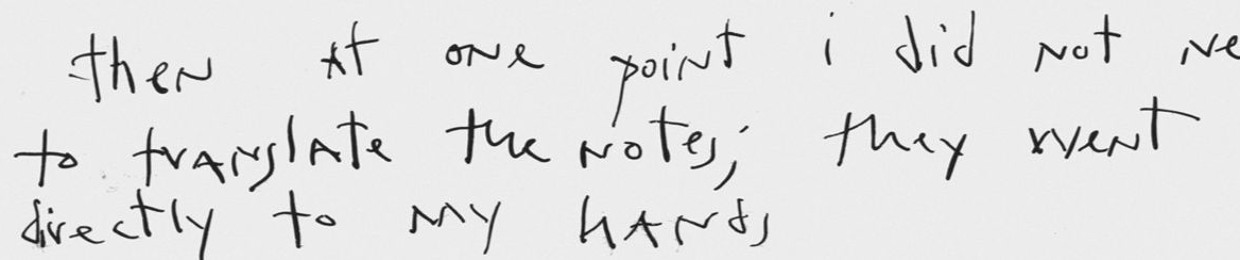 then at one point i did not ne
to translate the notes; they went
directly to my hands